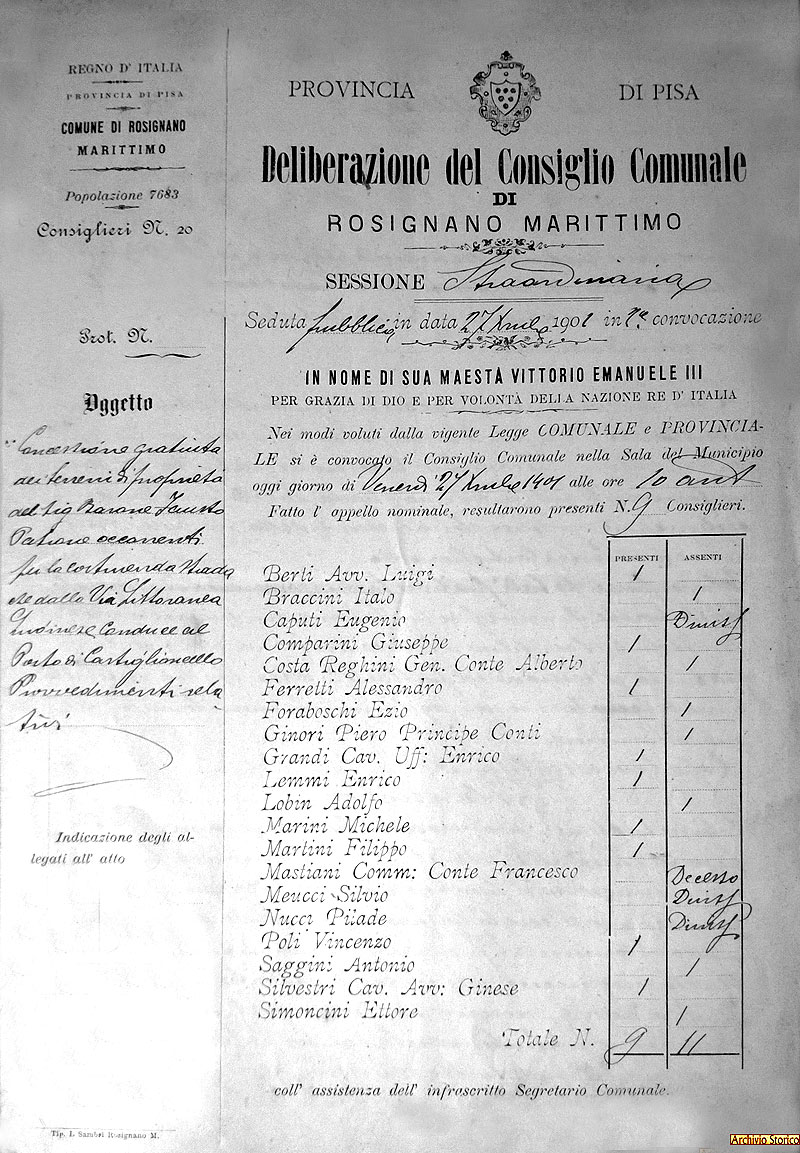 REGNO D' ITALIA
PROVINCIA DI PISA
COMUNE DI ROSIGNANO
MARITTIMO
Popolazione 7683
Consiglieri N. 20
Prot. N.
Oggetto
Concessione gratuita
dei terreni di proprietà
del Sig Barone Fausto
Patrone occorrenti
per la costruenda strada
che dalla Via Littoranea
Livornese conduce al
Porto di Castiglioncello
Provvedimenti rela
tivi
Indicazione degli al-
legati all' atto
Tip. L. Sambri Rosignano M.
PROVINCIA DI PISA
Deliberazione del Consiglio Comunale
DI
ROSIGNANO MARITTIMO
SESSIONE Straordinaria
Seduta pubblica in data 27 Xmbre 1901 in 1ª convocazione
IN NOME DI SUA MAESTÀ VITTORIO EMANUELE III
PER GRAZIA DI DIO E PER VOLONTÀ DELLA NAZIONE RE D' ITALIA
Nei modi voluti dalla vigente Legge COMUNALE e PROVINCIA-
LE si è convocato il Consiglio Comunale nella Sala del Municipio
oggi giorno di Venerdì 27 Xmbre 1901 alle ore 10 ant
Fatto l' appello nominale, resultarono presenti N. 9 Consiglieri.
PRESENTI ASSENTI
Berti Avv. Luigi 1
Braccini Italo 1
Caputi Eugenio Dimiss
Comparini Giuseppe 1
Costa Reghini Gen. Conte Alberto 1
Ferretti Alessandro 1
Foraboschi Ezio 1
Ginori Piero Principe Conti 1
Grandi Cav. Uff: Enrico 1
Lemmi Enrico 1
Lobin Adolfo 1
Marini Michele 1
Martini Filippo 1
Mastiani Comm: Conte Francesco Decesso
Meucci Silvio Dimiss
Nucci Pilade Dimiss
Poli Vincenzo 1
Saggini Antonio 1
Silvestri Cav. Avv: Ginese 1
Simoncini Ettore 1
Totale N. 9 11
coll' assistenza dell' infrascritto Segretario Comunale.
Archivio Storico